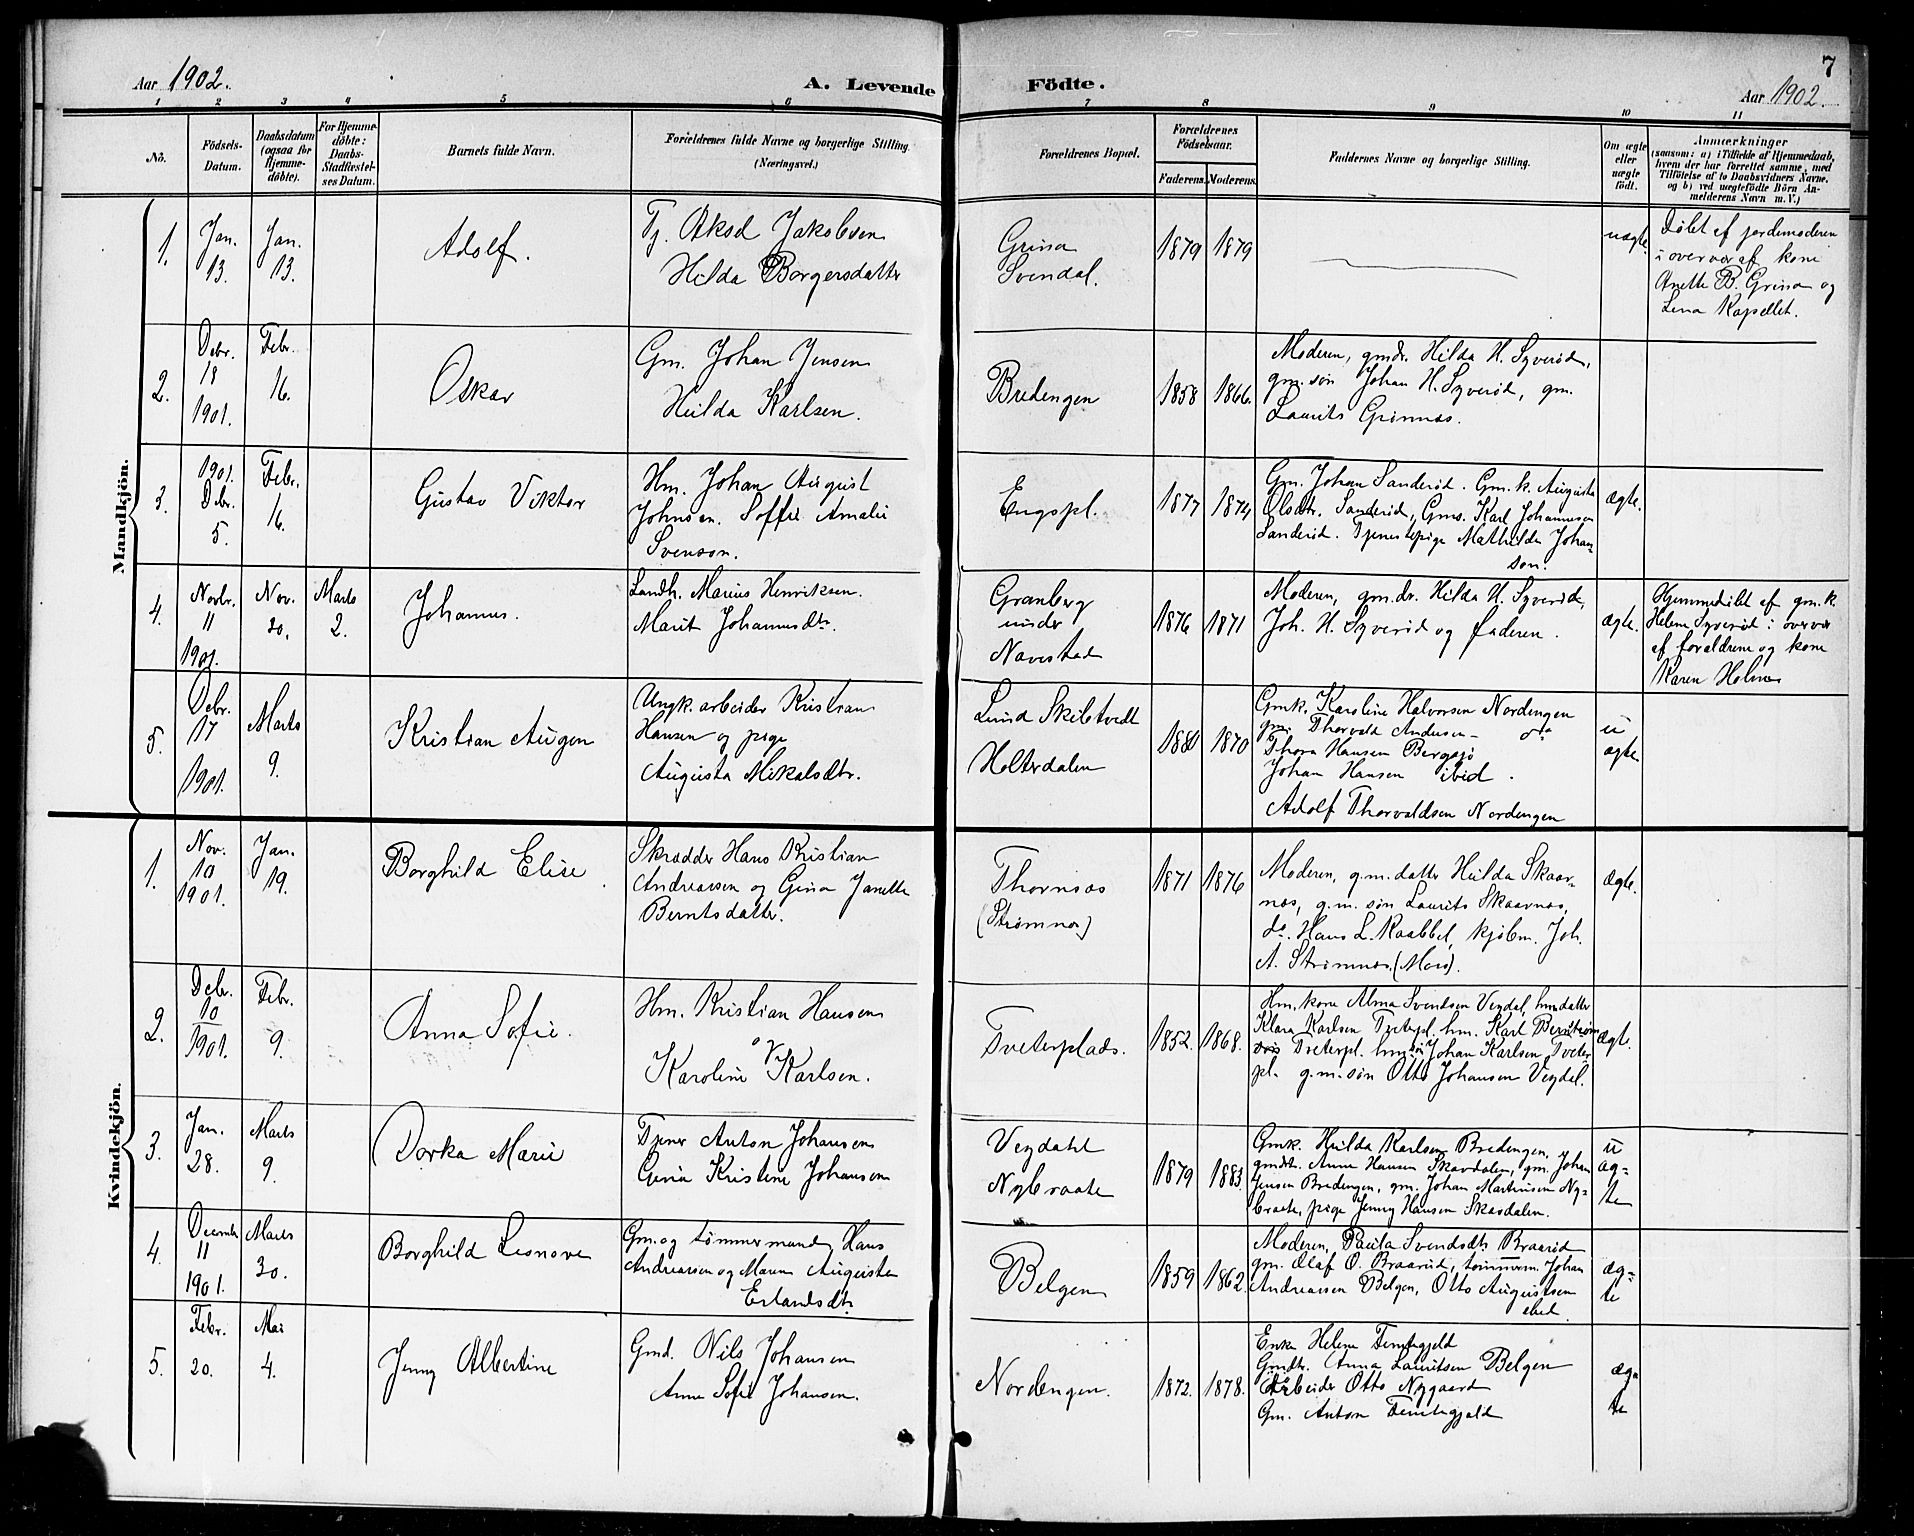 7
Aar 1902.
A. Levende Födte.
Aar 1902.
1 2 3 4 5 6 7 8 9 10 11
No.
Födsels-
Datum.
Daabsdatum
(ogsaa for
Hjemme-
döbte).
For Hjemme-
döbte:
Daabs-
Stadfæstel-
ses Datum.
Barnets fulde Navn.
Forældrenes fulde Navne og borgerlige Stilling
(Næringsvei.)
Forældrenes Bopæl.
Forældrenes
Födselsaar.
Faderens. Moderens.
Faddernes Navne og borgerlige Stilling.
Om ægte
eller
uægte
födt.
Anmærkninger
(saasom: a) i Tilfælde af Hjemmedaab,
hvem der har forrettet samme, med
Tilföielse af to Daabsvidners Navne.
og b) ved uægtefödte Börn An-
melderens Navn m. V.)
Mandkjön.
1.
Jan.
13.
Jan.
13.
Adolf.
Tj. Aksel Jakobsen
Hilda Borgersdatter
Grina
Svendal.
1879 1879
uægte.
Døbt af jordemoderen
i overvær af kone
Anette B. Grina og
Lena Kapellet.
2.
Debr.
18
1901.
Febr.
16.
Oskar
Gm. Johan Jensen
Hulda Karlsen.
Bredengen
1858 1866.
Moderen, gmdr. Hilda H. Syverød,
gm. søn Johan H. Syverød, gm.
Laurits Grimnæs.
3.
1901.
Debr.
5.
Febr.
16.
Gustav Viktor
Hm. Johan August
Johnsen. Soffie Amalie
Svenson.
Engspl.
1877 1874
Gm. Johan Sanderød. Gm. k. Augusta
Olsdtr. Sanderød, Gms. Karl Johannesen
Sanderød. Tjenestepige Mathilda Johan-
son.
ægte.
4.
Novbr.
11
1901.
Nov.
20.
Marts
2.
Johannes.
Landh. Marius Henriksen.
Marit Johannesdtr.
Granberg
under
Navestad
1876 1871
Moderen, gm.dr. Hilda H. Syverød,
Joh. H. Syverød og faderen.
ægte.
Hjemmedøbt af gm. k.
Helene Syverød i overvær
af forældrene og kone
Karen Holmes
5.
Debr.
17
1901.
Marts
9.
Kristian Augen
Ungk. arbeider Kristian
Hansen og pige
Augusta Mikalsdtr.
Lund Skibtvedt
Holterdalen
1880 1870
Gmk. Karoline Halvorsen Nordengen
gm. Thorvald Andersen - do
Thora Hansen Bergsjø
Johan Hansen ibid.
Adolf Thorvaldsen Nordengen
u
ægte
Kvindekjön.
1.
Nov.
10
1901.
Jan.
19.
Borghild Elise.
Skrædder Hans Kristian
Andreassen og Gina Janette
Berntsdatter.
Thornæs
(Strømnæs)
1871 1876
Moderen, g.m. datter Hulda Skaar-
næs, g.m. søn Laurits Skaarnæs,
do. Hans L. Kaabbel, kjøbm. Joh.
A. Strømnæs. (Moss).
ægte.
2.
Debr.
10
1901.
Febr.
9.
Anna Sofie.
Hm. Kristian Hansen
og
Karoline Karlsen.
Tveterplads.
1852. 1868.
Hm. kone Alma Svendsen Vegdal, hm.datter
Klara Karlsen Tveterpl. hm. Karl Bernstrøm
Tveterpl. hm.søn Johan Karlsen Tveter-
pl. g.m. søn Otto Johansen Vegdal.
ægte.
3.
Jan.
28.
Marts
9.
Dorka Marie
Tjener Anton Johansen
Gina Kristine Johansen
Vegdahl
Nybraate
1879 1883.
Gmk. Hulda Karlsen Bredengen,
gmdtr. Anne Hansen Skavdalen, gm. Johan
Jensen Bredengen, gm. Johan Martinsen Ny-
braate, pige Jenny Hansen Skavdalen.
u
æg-
te
4.
Decembr
11
1901.
Marts
30.
Borghild Leonore
Gm. og tømmermand Hans
Andreassen og Maren Augusta
Erlandsdtr.
Belgen
1859 1862.
Moderen, Paula Svendsdtr. Braarød
gm. Olaf O. Braarud, tømmerm. Johan
Andreassen Belgen, Otto Augustsen
ibid.
æg-
te
5.
Febr.
20.
Mai
4.
Jenny Albertine
Gmd. Nils Johansen
Anne Sofie Johansen.
Nordengen.
1872. 1878.
Enke Helene Femtegjeld
Gmdtr. Anna Lauritsen Belgen
Arbeider Otto Nygaard
Gm. Anton Femtegjeld
æg-
te